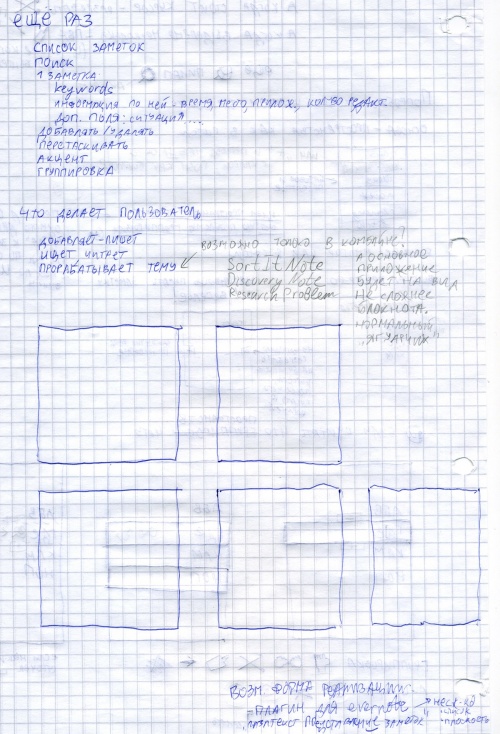 ЕЩЁ РАЗ
СПИСОК ЗАМЕТОК
ПОИСК
1 ЗАМЕТКА
keywords
ИНФОРМАЦИЯ ПО НЕЙ - ВРЕМЯ, МЕСТО, ПРИЛОЖ., КОЛ-ВО РЕДАКТ.
ДОП. ПОЛЯ: СИТУАЦИЯ...
ДОБАВЛЯТЬ/УДАЛЯТЬ
ПЕРЕТАСКИВАТЬ
АКЦЕНТ
ГРУППИРОВКА
ЧТО ДЕЛАЕТ ПОЛЬЗОВАТЕЛЬ
ДОБАВЛЯЕТ-ПИШЕТ
ИЩЕТ, ЧИТАЕТ
ПРОРАБАТЫВАЕТ ТЕМУ
ВОЗМОЖНО ТОЛЬКО В КОМБАЙНЕ!
Sort It Note
Discovery Note
Research Problem
А ОСНОВНОЕ
ПРИЛОЖЕНИЕ
БУДЕТ НА ВИД
НЕ СЛОЖНЕЕ
БЛОКНОТА.
НОРМАЛЬНЫЙ
ВОЗМ. ФОРМА РЕАЛИЗАЦИИ:
- ПЛАГИН ДЛЯ evernote
ПРЕДСТАВЛЕНИЕ ЗАМЕТОК
ПЛОСКОСТЬ